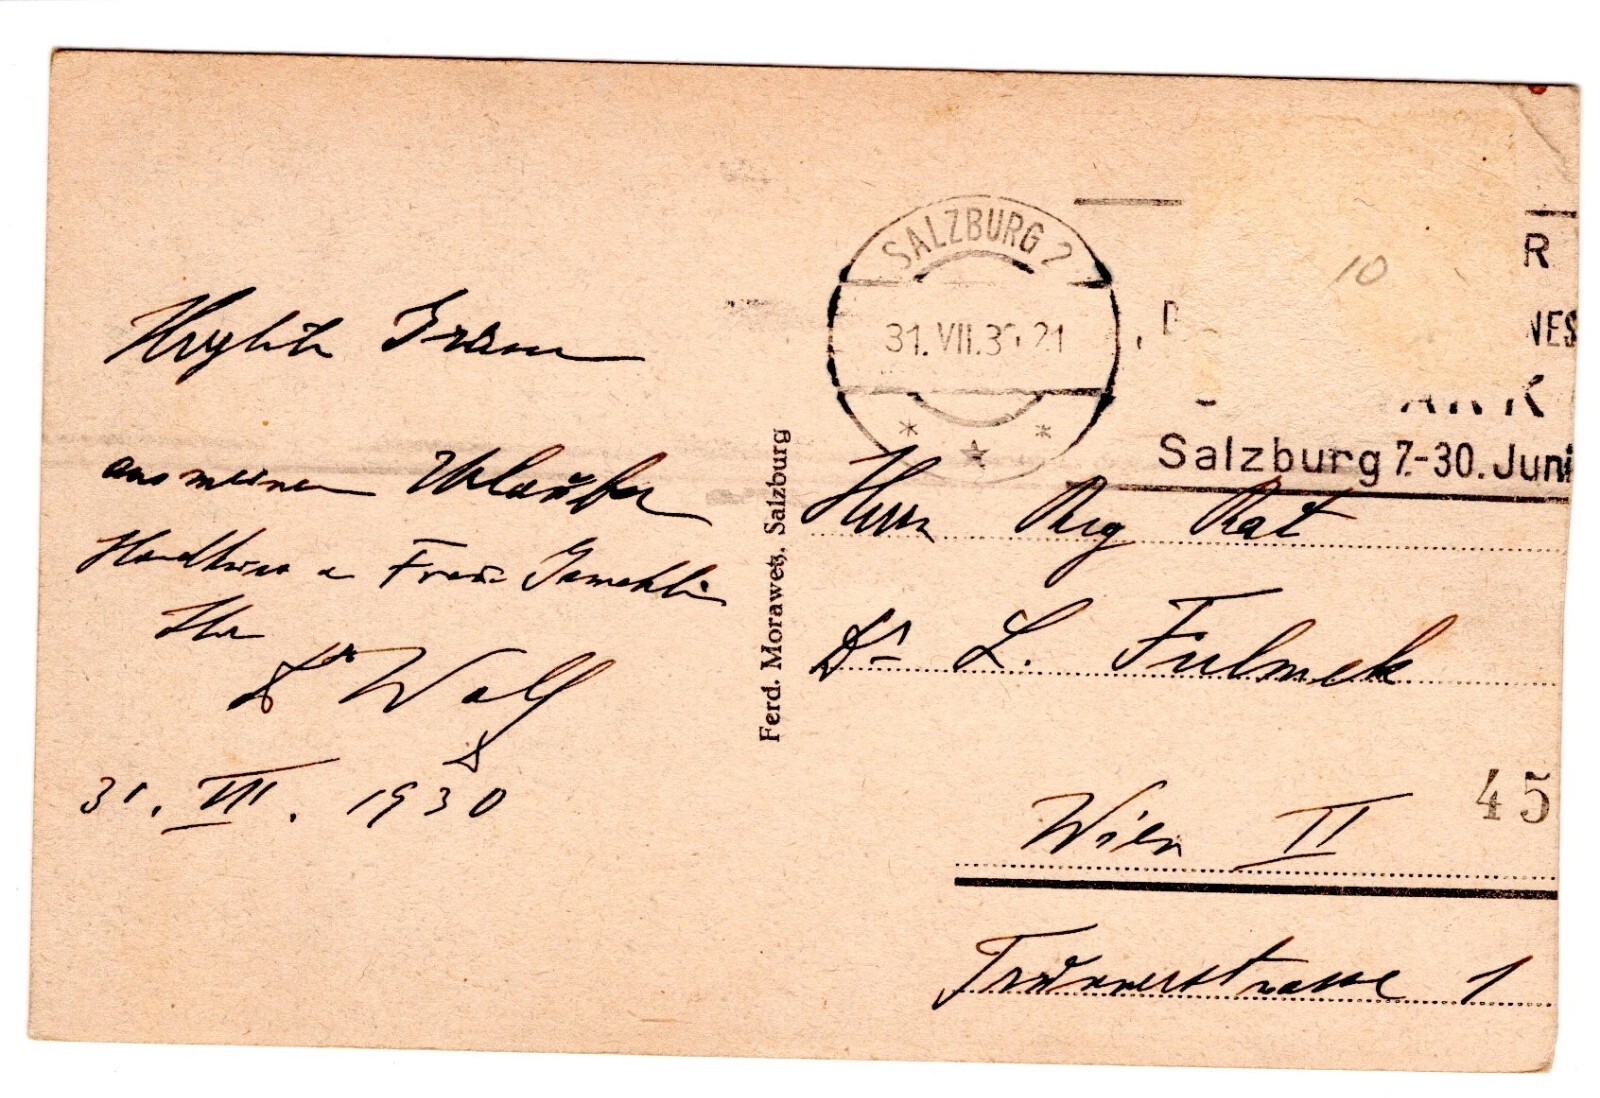 Herzliche Grüsse
aus meinem Urlaub
Handkuss a Frau Gemahlin
Ihr
Dr Wolf
31. VII. 1930
Ferd. Morawetz, Salzburg
SALZBURG 2
31.VII.30 21
R
NES
Salzburg 7.-30. Juni
10
Herrn Reg Rat
Dr L. Fulmek
45
Wien II
Trunnerstrasse 1